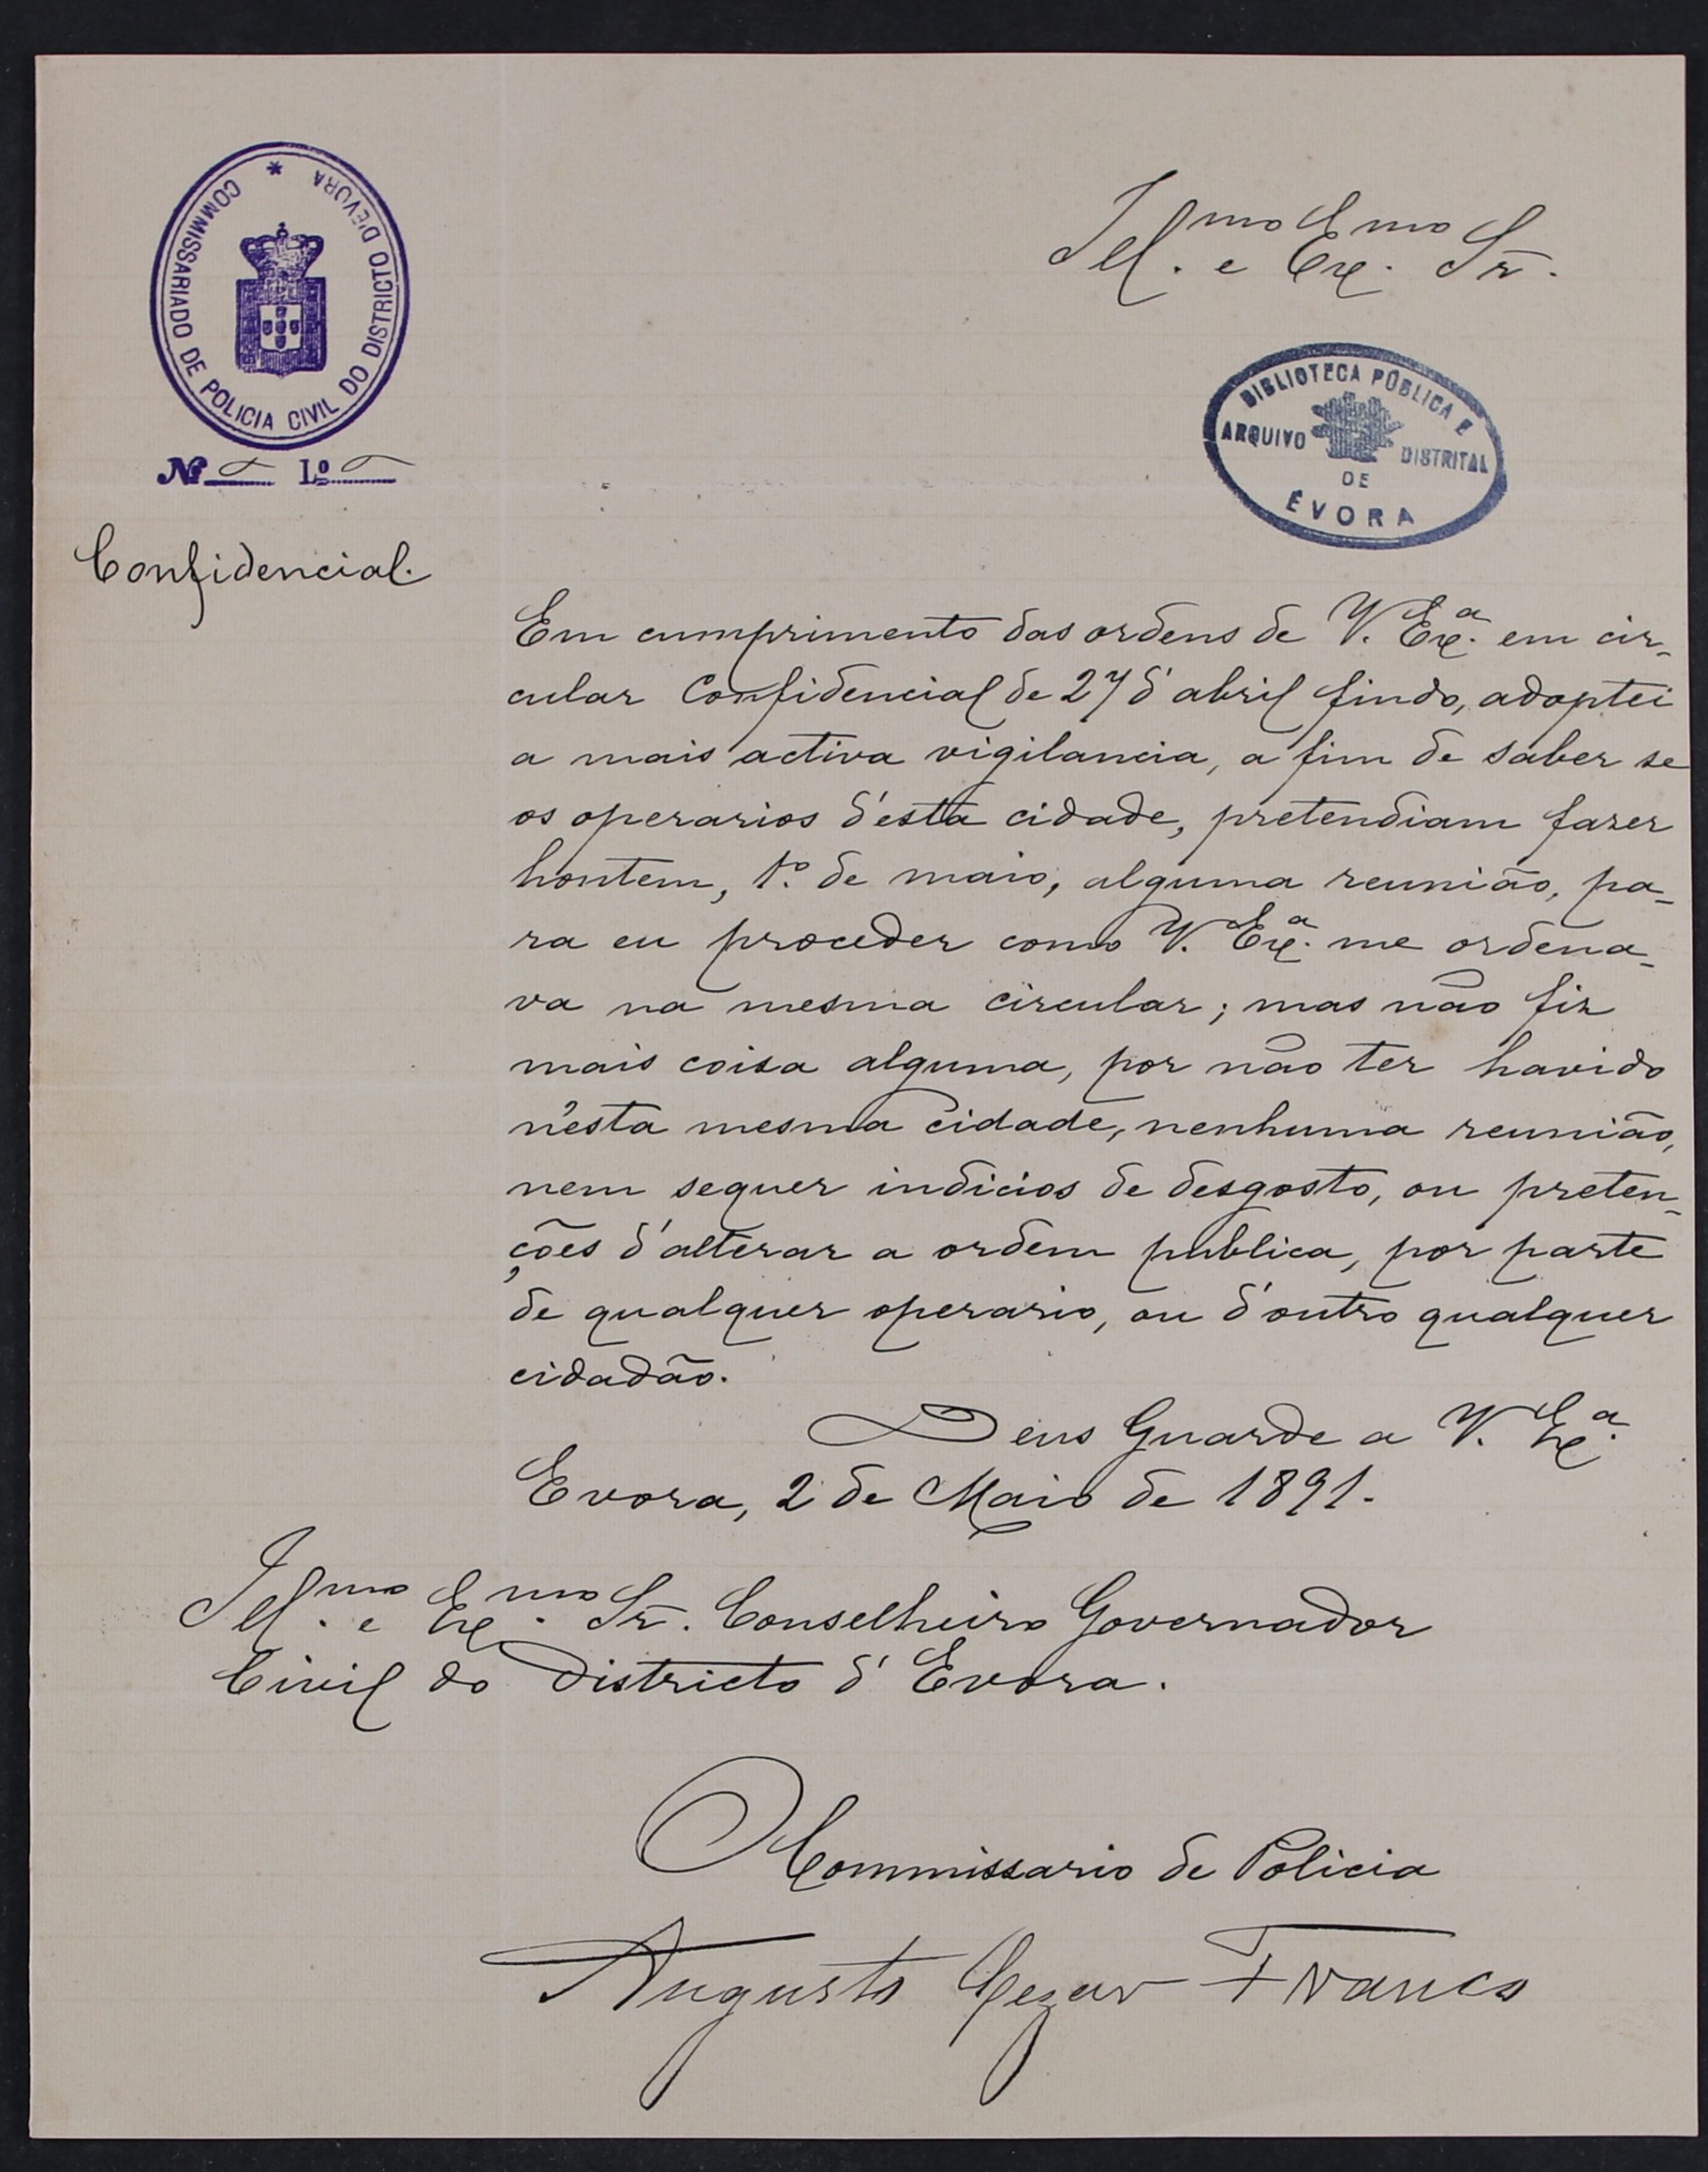 COMMISSARIADO DE POLICIA CIVIL DO DISTRICTO D'EVORA *
Nº L.º
Confidencial.
Ill.mo e Ex.mo Sr.
BIBLIOTECA PÚBLICA E
ARQUIVO DISTRITAL
DE
ÉVORA
Em cumprimento das ordens de V. Ex.ª em cir-
cular Confidencial de 27 d'abril findo, adoptei
a mais activa vigilancia, a fim de saber se
os operarios d'esta cidade, pretendiam fazer
hontem, 1.º de maio, alguma reunião, pa-
ra eu proceder como V. Ex.ª me ordena-
va na mesma circular; mas não fiz
mais coisa alguma, por não ter havido
n'esta mesma cidade, nenhuma reunião,
nem sequer indicios de desgosto, ou preten-
ções d'alterar a ordem publica, por parte
de qualquer operario, ou d'outro qualquer
cidadão.
Deus Guarde a V. Ex.ª
Evora, 2 de Maio de 1891.
Ill.mo e Ex.mo Sr. Conselheiro Governador
Civil do Districto d'Evora.
O Commissario de Policia
Augusto Cezar Franco